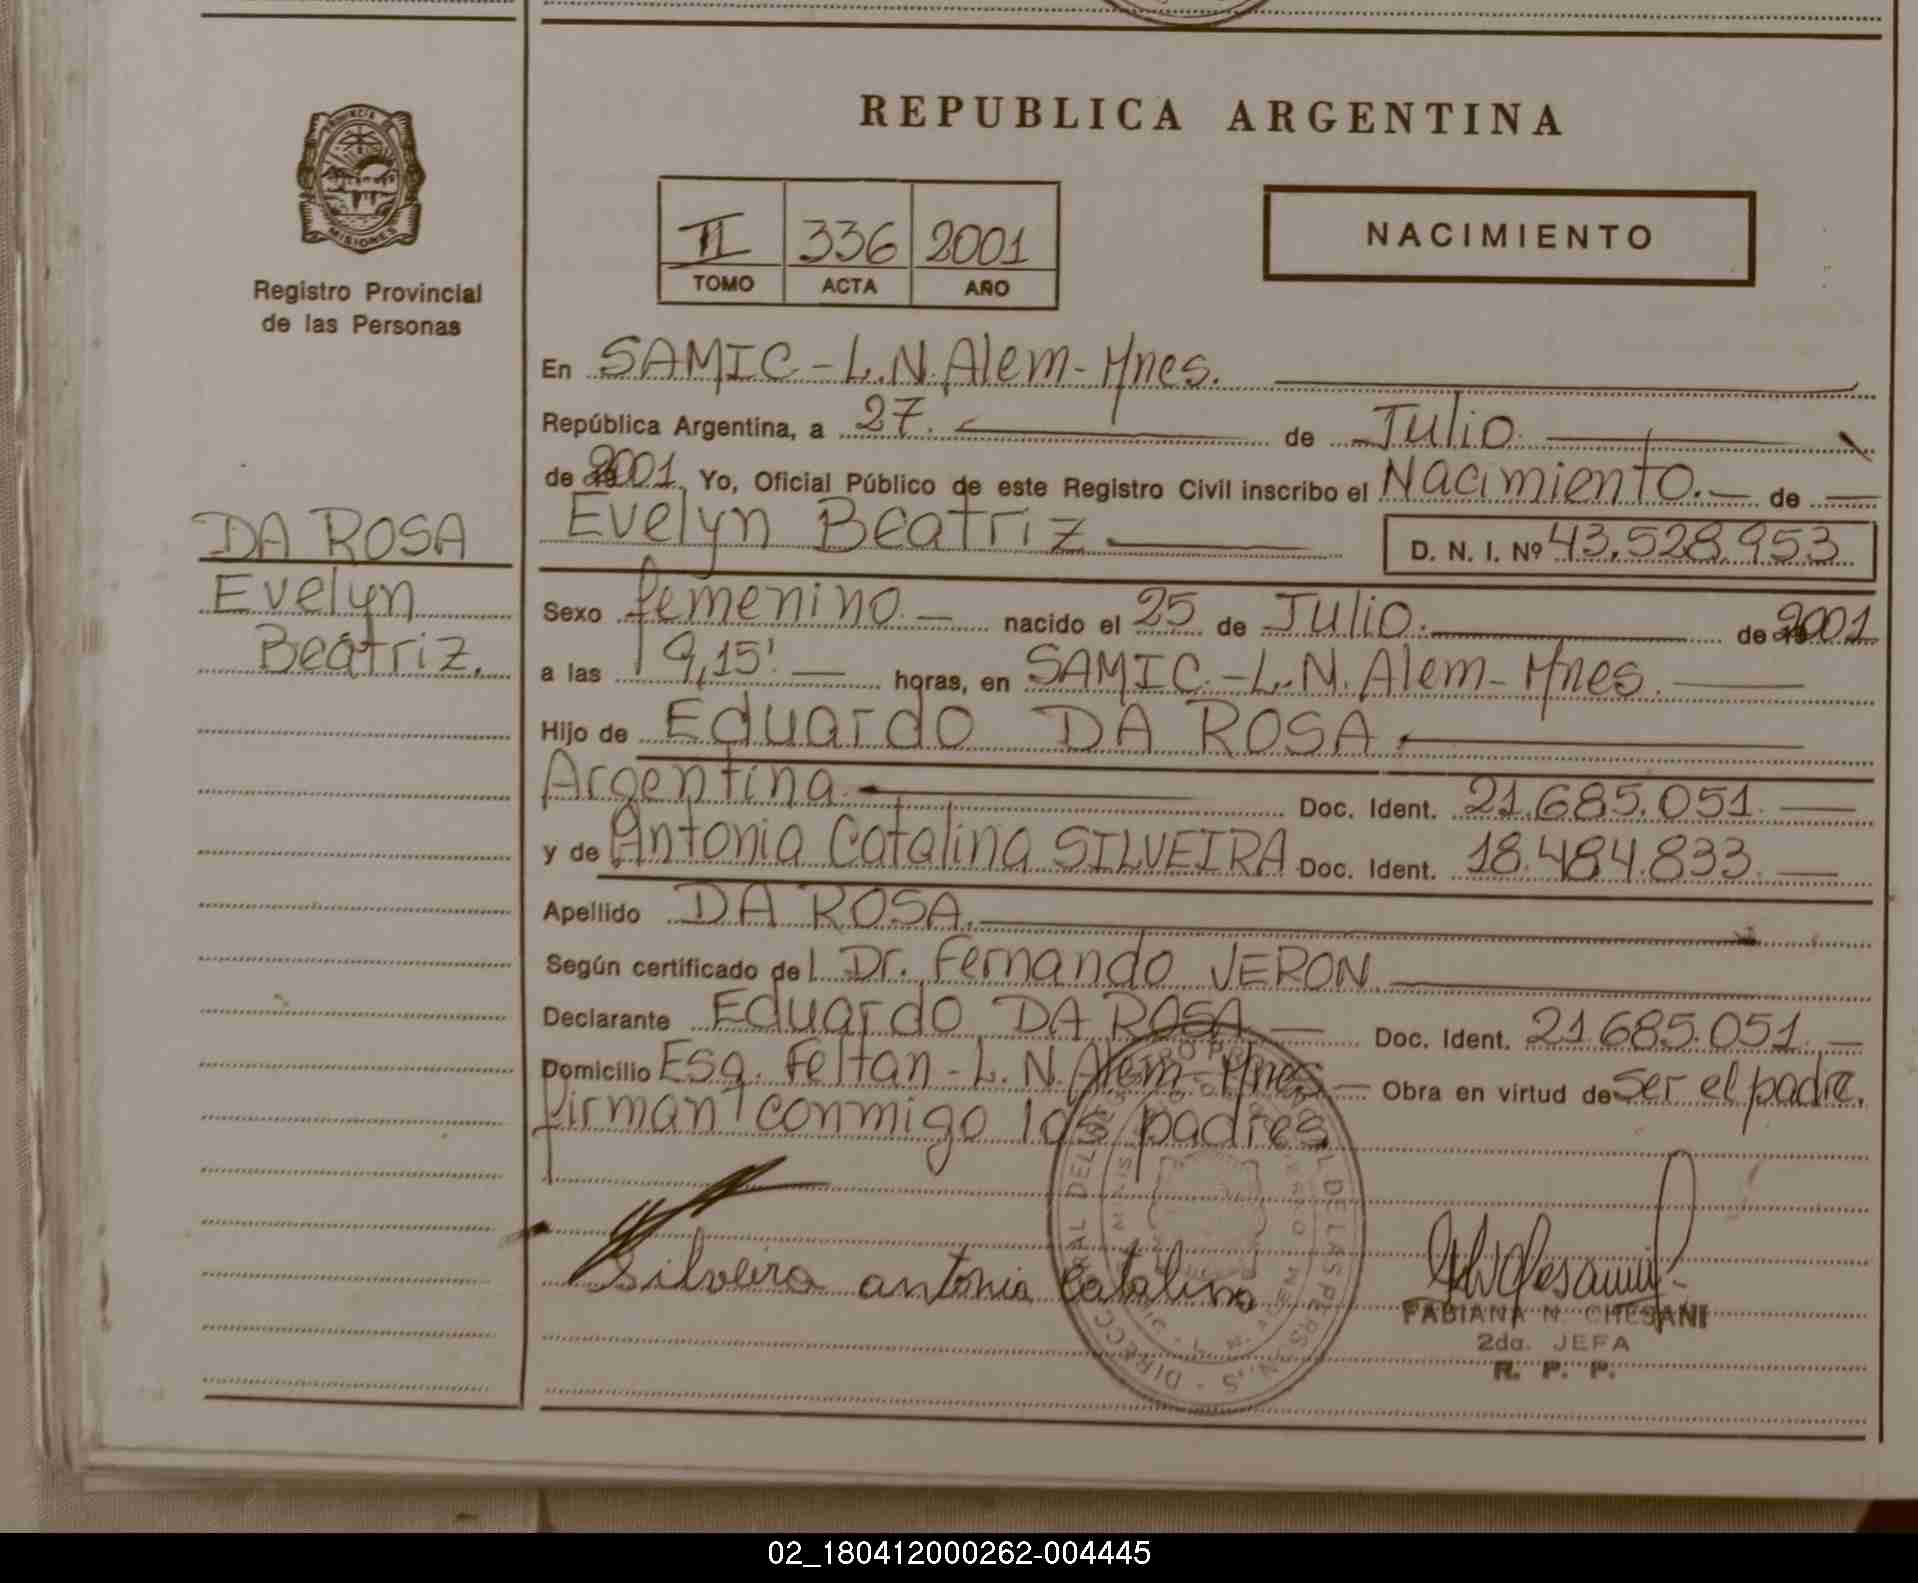 REPUBLICA ARGENTINA
PROVINCIA DE
MISIONES
Registro Provincial
de las Personas
II 336 2001
TOMO ACTA AÑO
NACIMIENTO
En SAMIC - L.N. Alem - Mnes.
República Argentina, a 27. de Julio.
de 2001. Yo, Oficial Público de este Registro Civil inscribo el Nacimiento. de
Evelyn Beatriz D. N. I. Nº 43.528.953
DA ROSA
Evelyn
Beatriz.
Sexo femenino. nacido el 25 de Julio. de 2001
a las 9,15'. horas, en SAMIC. - L.N. Alem - Mnes.
Hijo de Eduardo DA ROSA.
Argentina. Doc. Ident. 21.685.051.
y de Antonia Catalina SILVEIRA Doc. Ident. 18.484.833.
Apellido DA ROSA.
Según certificado del Dr. Fernando VERON
Declarante Eduardo DA ROSA Doc. Ident. 21.685.051.
Domicilio Esq. Feltan - L.N. Alem - Mnes Obra en virtud de ser el padre.
firman conmigo los padres
Silveira antonia Catalina
FABIANA N. CHESANI
2da. JEFA
R. P. P.
02_180412000262-004445